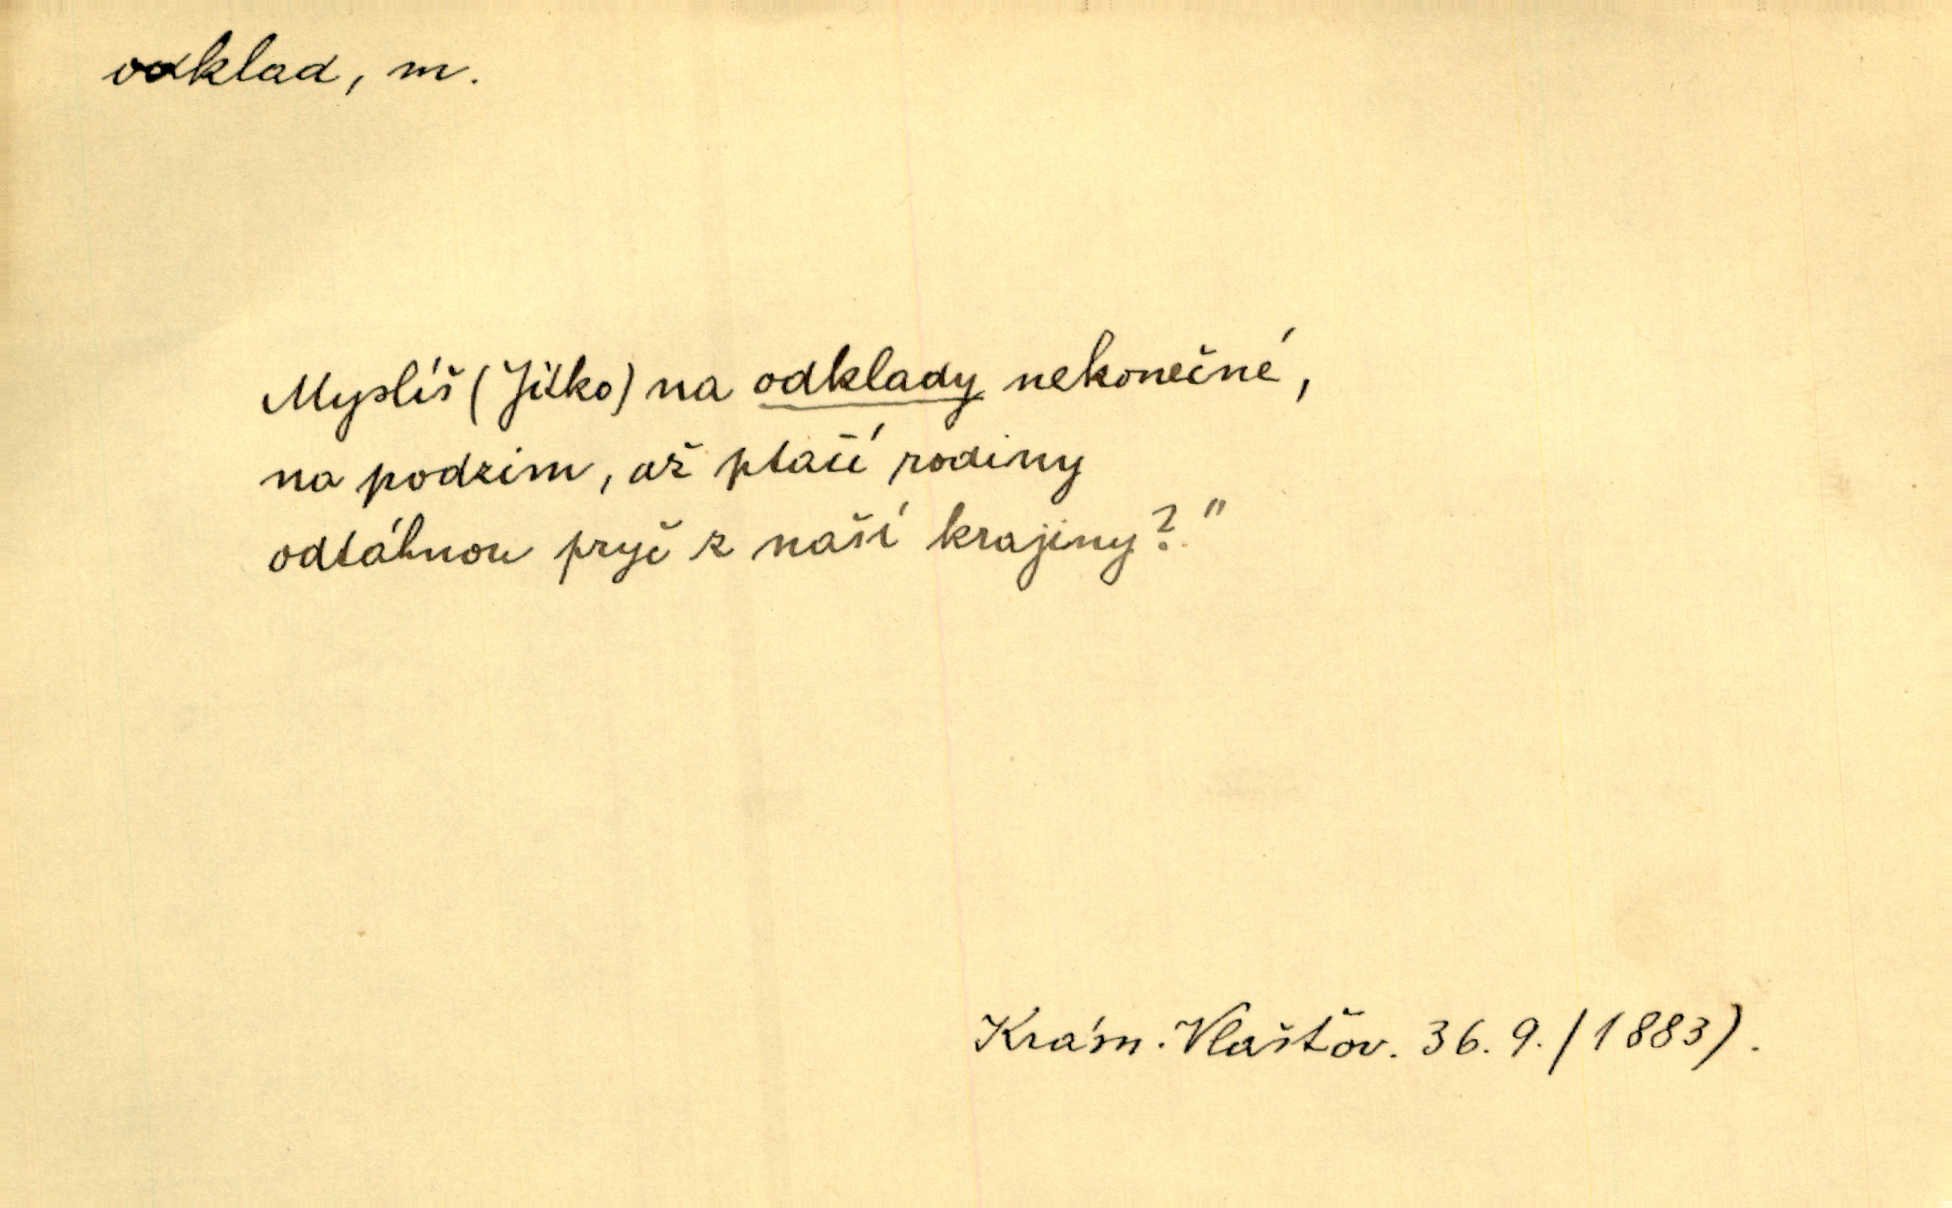 odklad, m.
Myslíš (Jitko) na odklady nekonečné,
na podzim, až ptačí rodiny
odtáhnou pryč z naší krajiny?"
Krásn. Vlaštov. 36. 9. (1883).